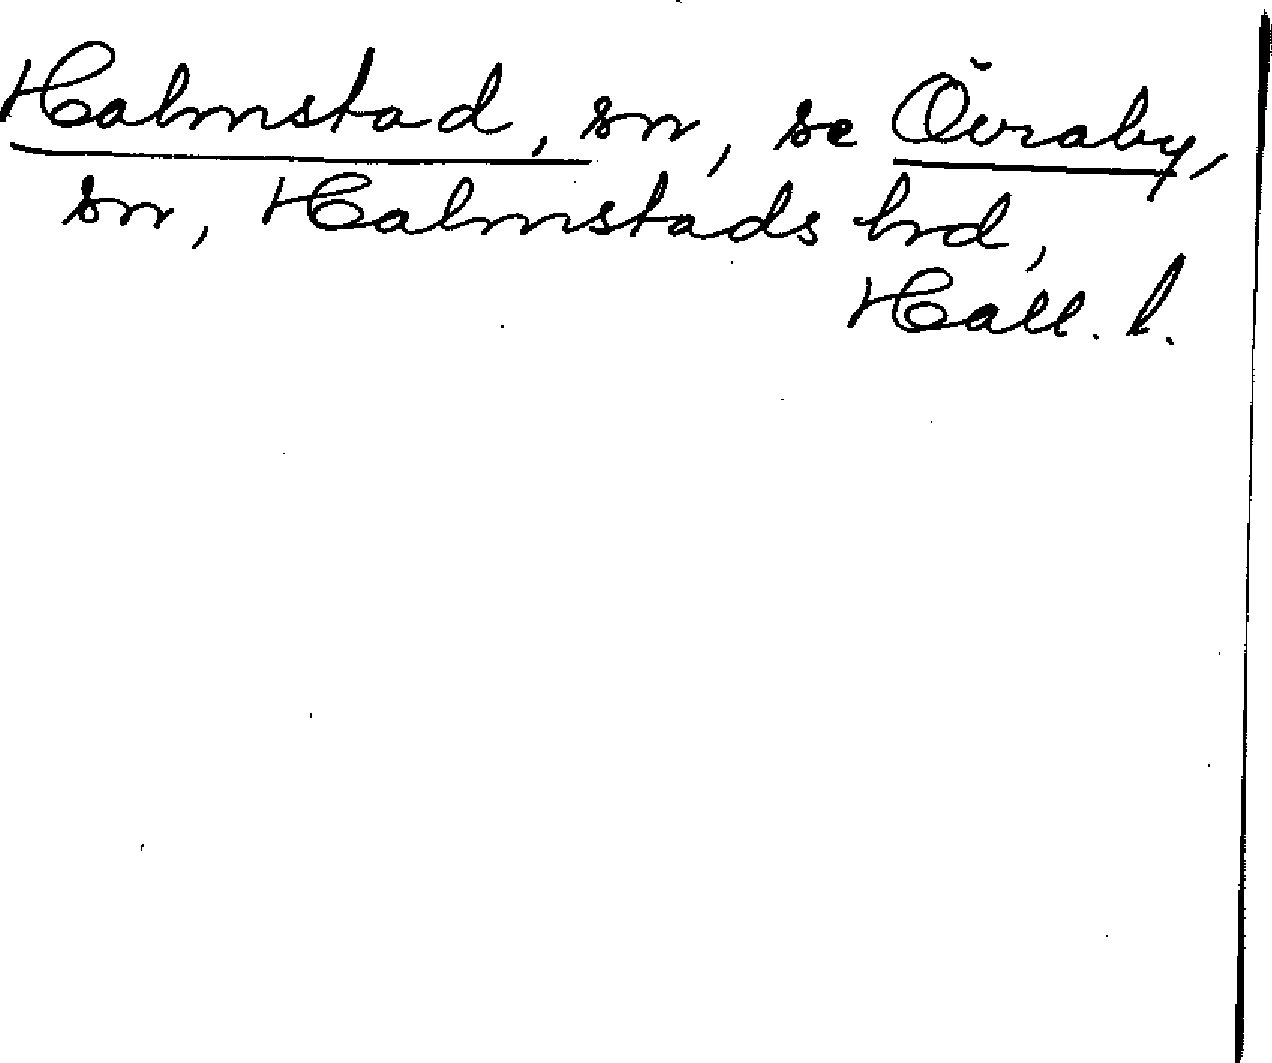 Halmstad, sn, se Övraby,
sn, Halmstads hrd,
Hall. l.